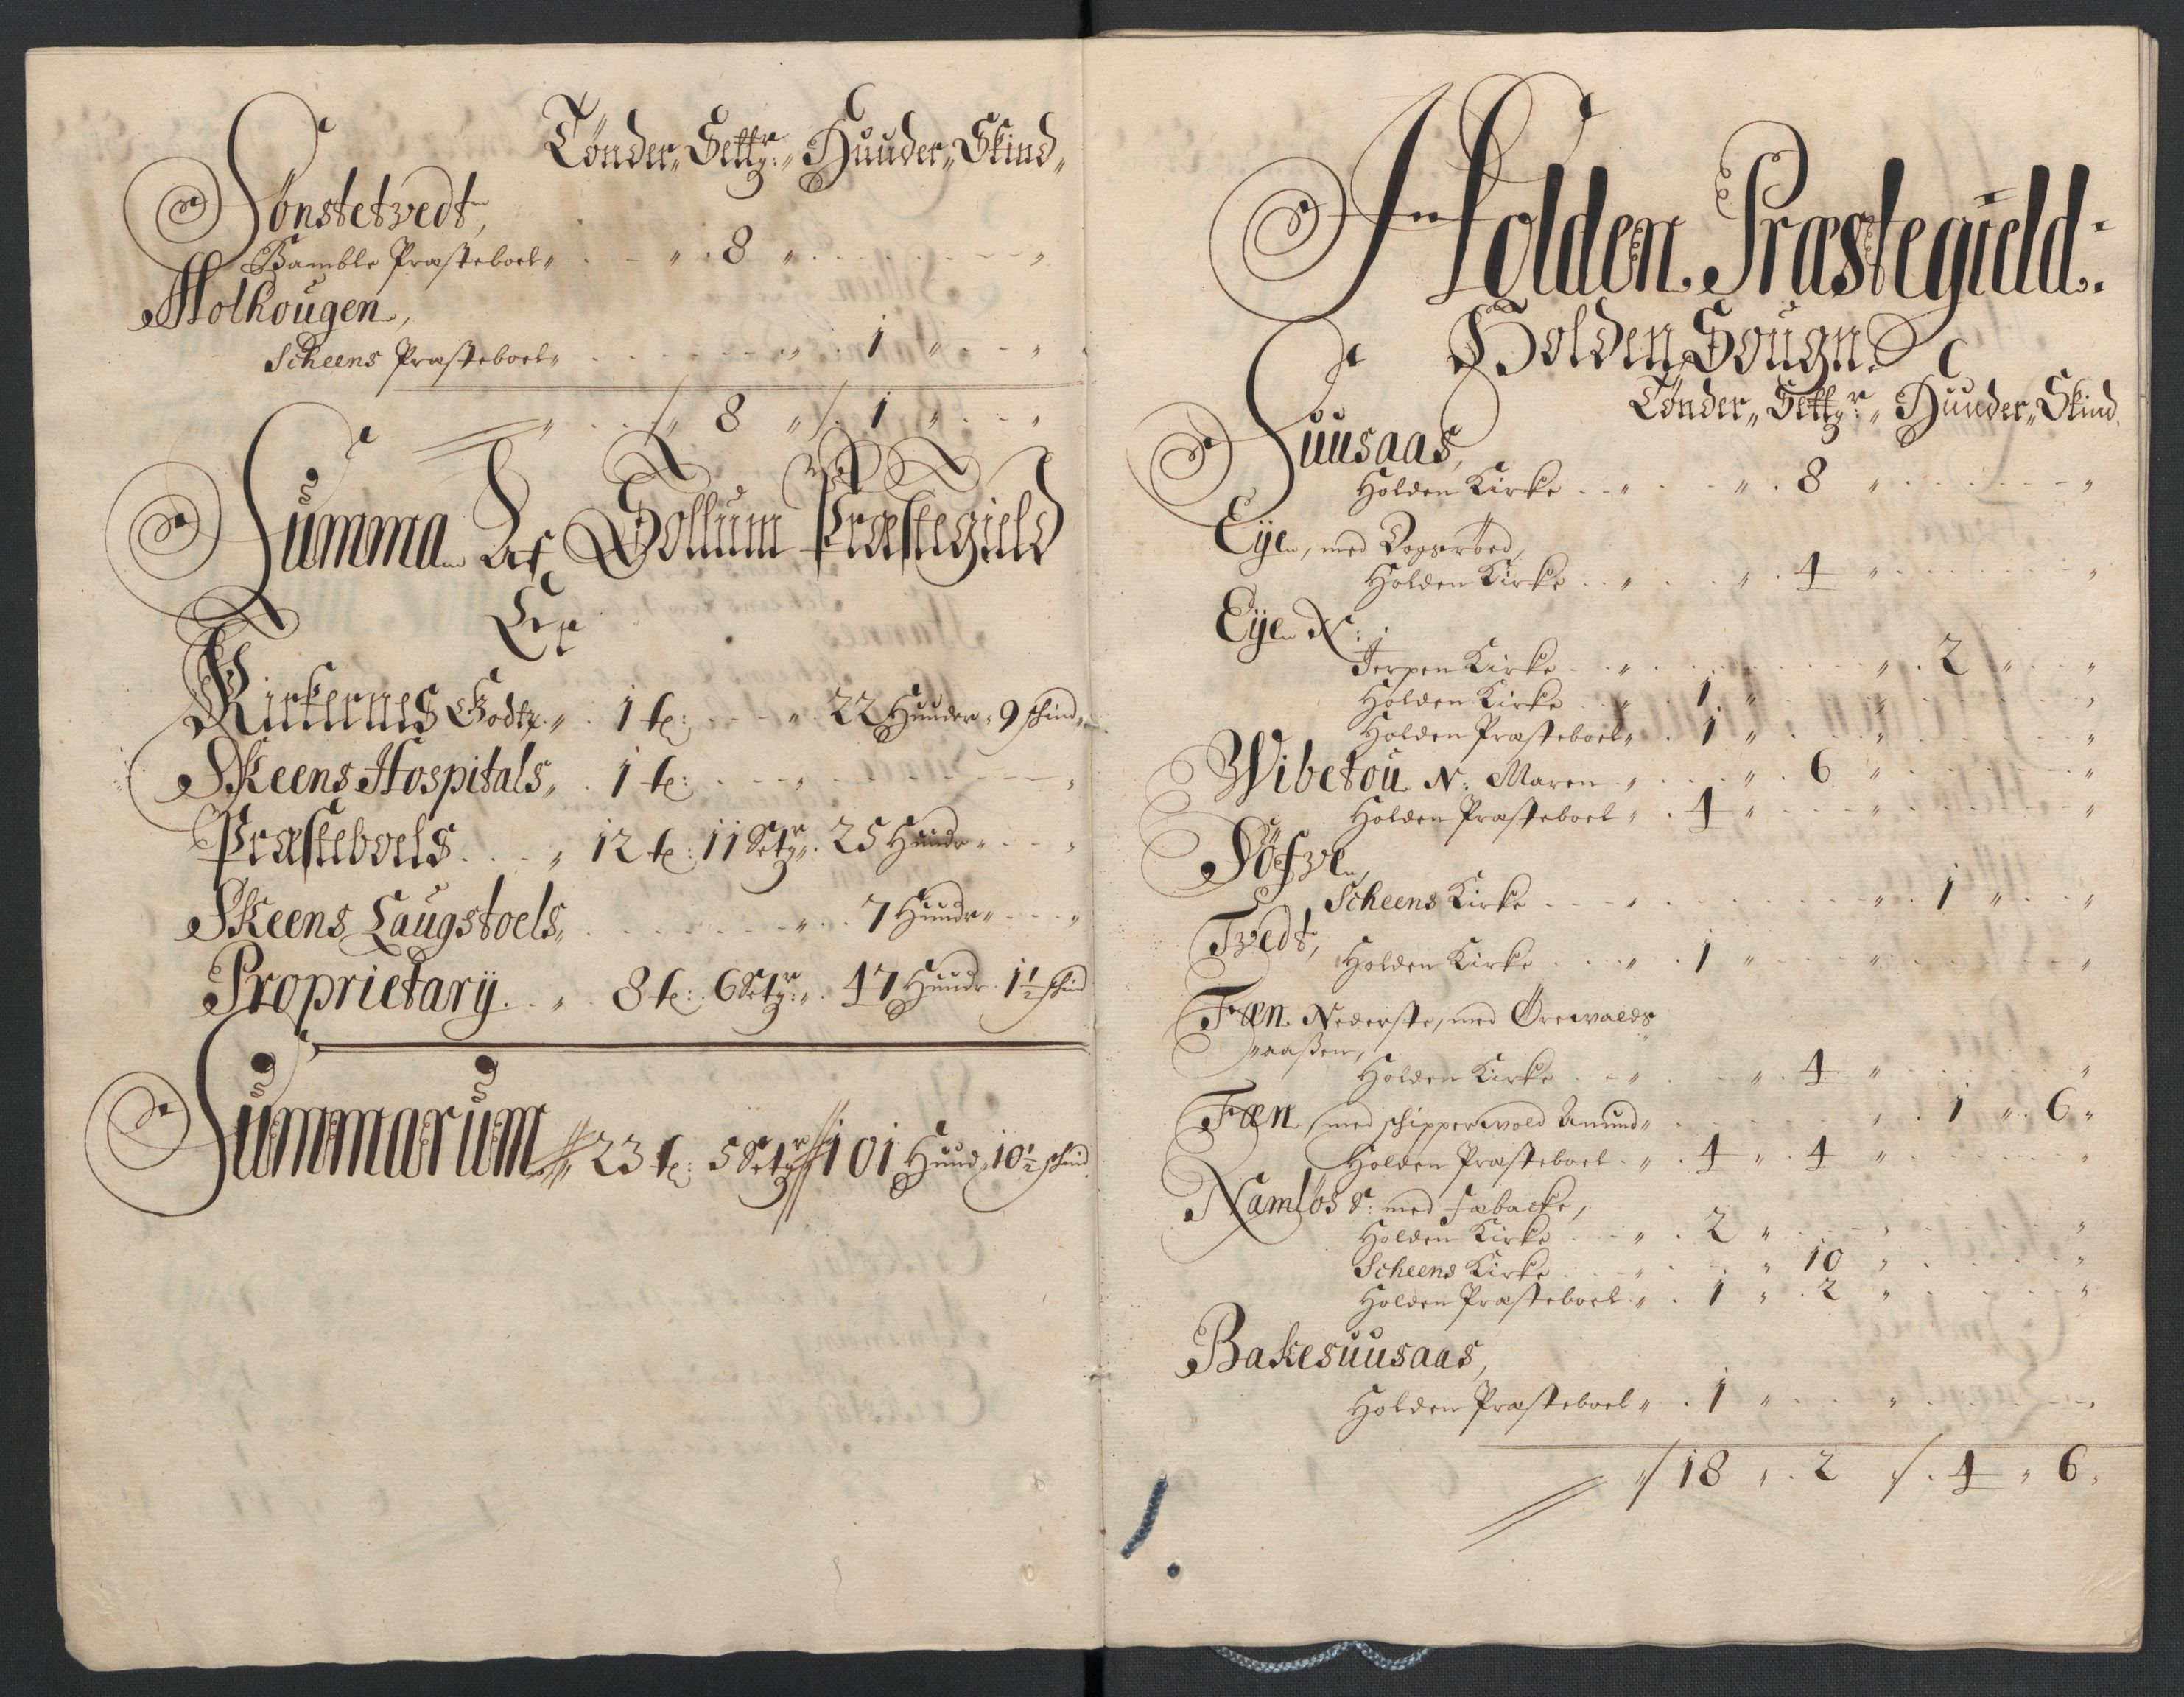 Tönder„ Settr:„ Huuder„ Skind„
Sönstetvedt,
Bamble Præsteboel„ . - „ . 8 „ . . . . . . - - - „
Holhougen,
Scheens Præsteboel„ . . . . . . . . „ . 1 „ . - - „
„ . . /„ 8 „/. 1 „ . - - „
Summa Af Sollum Præstegield
Er
Kirkernes Godtz„ . 1 t: . - - „ . 22 Huuder„ 9 schind„
Skeens Hospitals„ . 1 t: . . - - „ . . . - - - „
Præsteboels . . . „ 12 t: 11 Setr: „ . 25 Huudr„ . - - „
Skeens Laugstoels„ . . . . . . - - „ . . 7 Huudr„ . - - - „
Proprietarÿ . . „ 8 t: . 6 Setr: „ . 47 Huudr . 1½ schind
Summarum „ 23 t: 5 Setr „ 101 Huud„ 10½ schind
Holden Præstegield:
Holden Sougn
Tönder„ Settr:„ Huuder„ Skind„
Suusaas,
Holden Kirke . . „ . . „ . 8 „ . . . . - - - „
Eÿe, med Dogsröed,
Holden Kirke . . „ . . „ . 4 „ . . . . . . „
Eÿe N:
Jerpen Kirke . . „ . . . . . . „ . 2 „ . „
Holden Kirke . . „ 1 „ . . . „ . . . . „
Holden Præsteboel„ . 1 „ . . . „ . . . . „
Wibetou N: Maren „ . . . „ . 6 „ . . . . „
Holden Præsteboel „ . 4 „ . . . . „ . . . . „
Söfve,
Scheens Kirke . . - - „ . . . . . . . „ . 1 „ . . „
Tvedt,
Holden Kirke . . . „ . 1 „ . . . . „ . . . . „
Fæn Nederste, med Örewalds
„aassen,
Holden Kirke . . - „ . . „ . 4 „ . . . . „
Fæn med schipperwold Amund„ . . . . . . „ . 1 „ . 6 „
Holden Præsteboel . „ . 4 „ . 4 „ . . . . „
Namlös S: med Fæbacke,
Holden Kirke . . - „ . 2 „ . . . . „ . . . . „
Scheens Kirke . . . „ . . „ 10 „ . . . . „
Holden Præsteboel . „ . 1 „ . 2 „ . . . . „
Bakesuusaas,
Holden Præsteboel „ . 1 „ . . . „ . . . . „
„/ 18 „ . 2 „/ . 4 „ 6 „